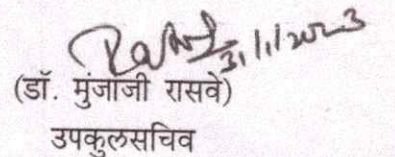 31/1/2023
(डॉ. मुंजाजी रासवे)
उपकुलसचिव